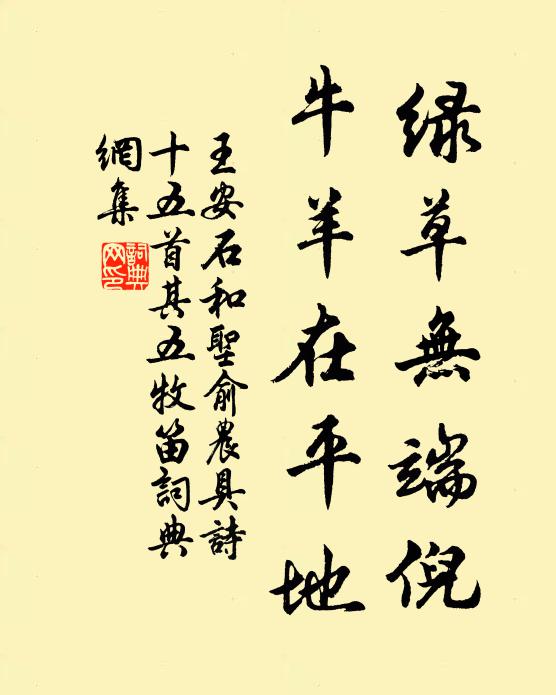 綠草無端倪
牛羊在平地
王安石和聖俞農具詩
十五首其五牧笛詞典
網集
詞典
网印